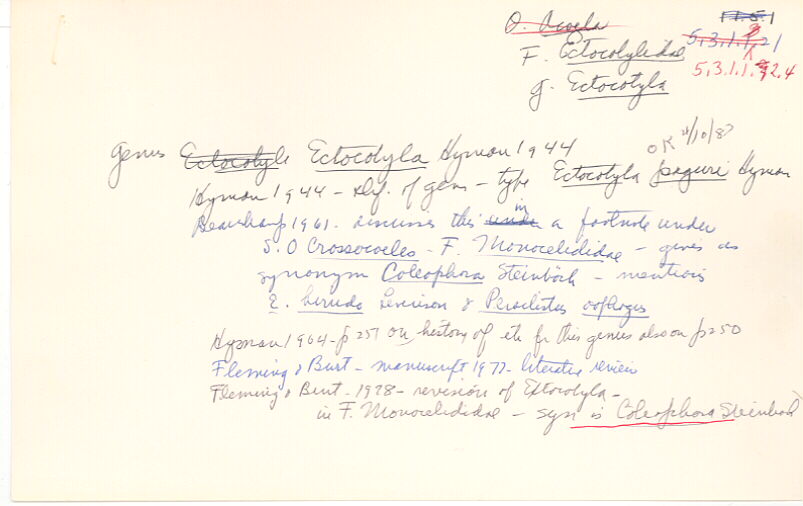 O. Acoela
F. Ectocotylidae
g. Ectocotyla
11.5.1
5.3.1.1.21
5.3.1.1.92.4
OK 4/10/87
Genus Ectocotyle Ectocotyla Hyman 1944
Hyman 1944 - def. of genus - type Ectocotyla paguri Hyman
Beauchamp 1961. discusses this under in a footnote under
S.O Crossocoeles - F. Monocelididae - gives as
synonym Coleophora Steinböck - mentions
E. hirudo Levinsen & Peraclistus oophagus
Hyman 1964 - p 257 on history of etc for this genus also on p 250
Fleming & Burt - manuscript 1977 - literature review
Fleming & Burt - 1978 - revision of Ectocotyla -
in F. Monocelididae - syn is Coleophora Steinböck